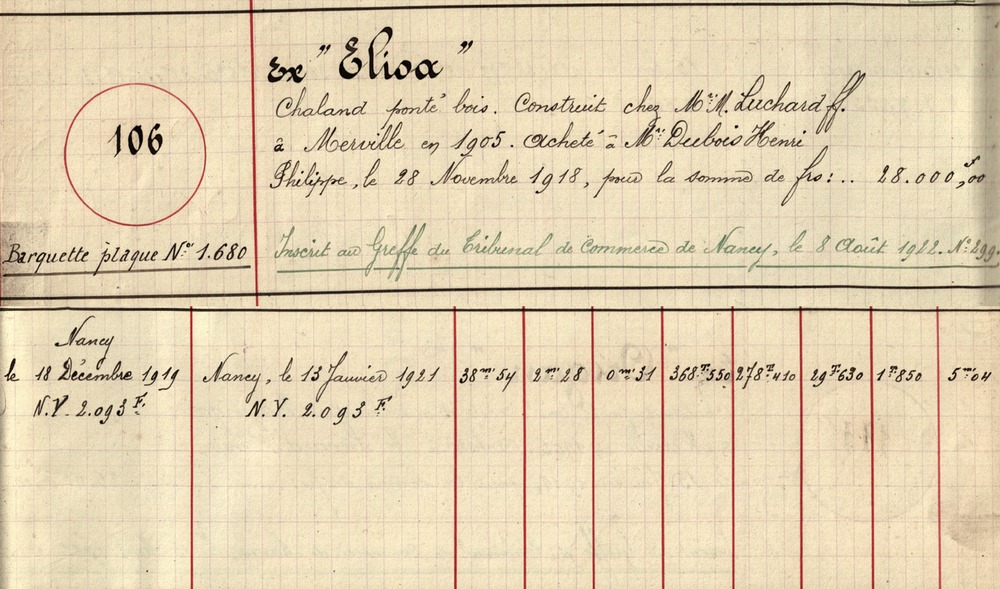 106
Barquette plaque No. 1.680
Ex " Elisa "
Chaland ponté bois. Construit chez Mr. M. Luchard ff.
à Merville en 1905. Acheté à Mr. Dubois Henri
Philippe, le 28 Novembre 1918, pour la somme de frs: .. 28.000,f00
Inscrit au Greffe du Tribunal de Commerce de Nancy, le 8 Août 1922. No. 299.
Nancy
le 18 Décembre 1919
N.Y. 2.093 F.
Nancy, le 13 Janvier 1921
N.Y. 2.093 F.
38m.54 2m.28 0m.31 368T.550 278T.410 29T.630 1T.850 5m.04